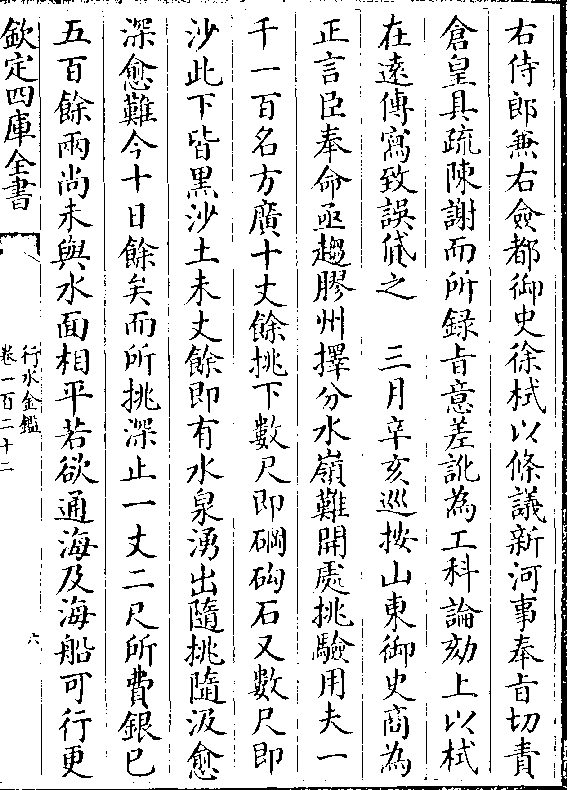 右侍郎兼右僉都御史徐栻以條議新河事奉㫖切責
倉皇具疏陳謝而所録㫖意差訛為工科論劾上以栻
在逺傳寫致誤貸之　三月辛亥巡按山東御史商為
正言臣奉命亟趨膠州擇分水嶺難開處挑驗用夫一
千一百名方廣十丈餘挑下數尺即磵砂石又數尺即
沙此下皆黒沙土未丈餘即有水泉湧出隨挑隨汲愈
深愈難今十日餘矣而所挑深止一丈二尺所費銀已
五百餘兩尚未與水面相平若欲通海及海船可行更
欽定四庫全書
行水金鑑
卷一百二十二
六